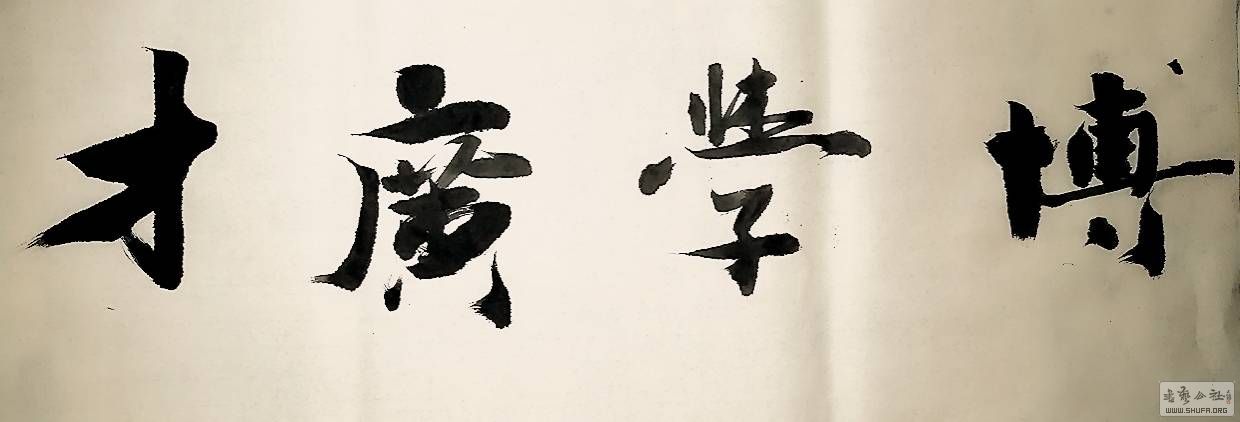 博學廣才
書藝公社
WWW.SHUFA.ORG